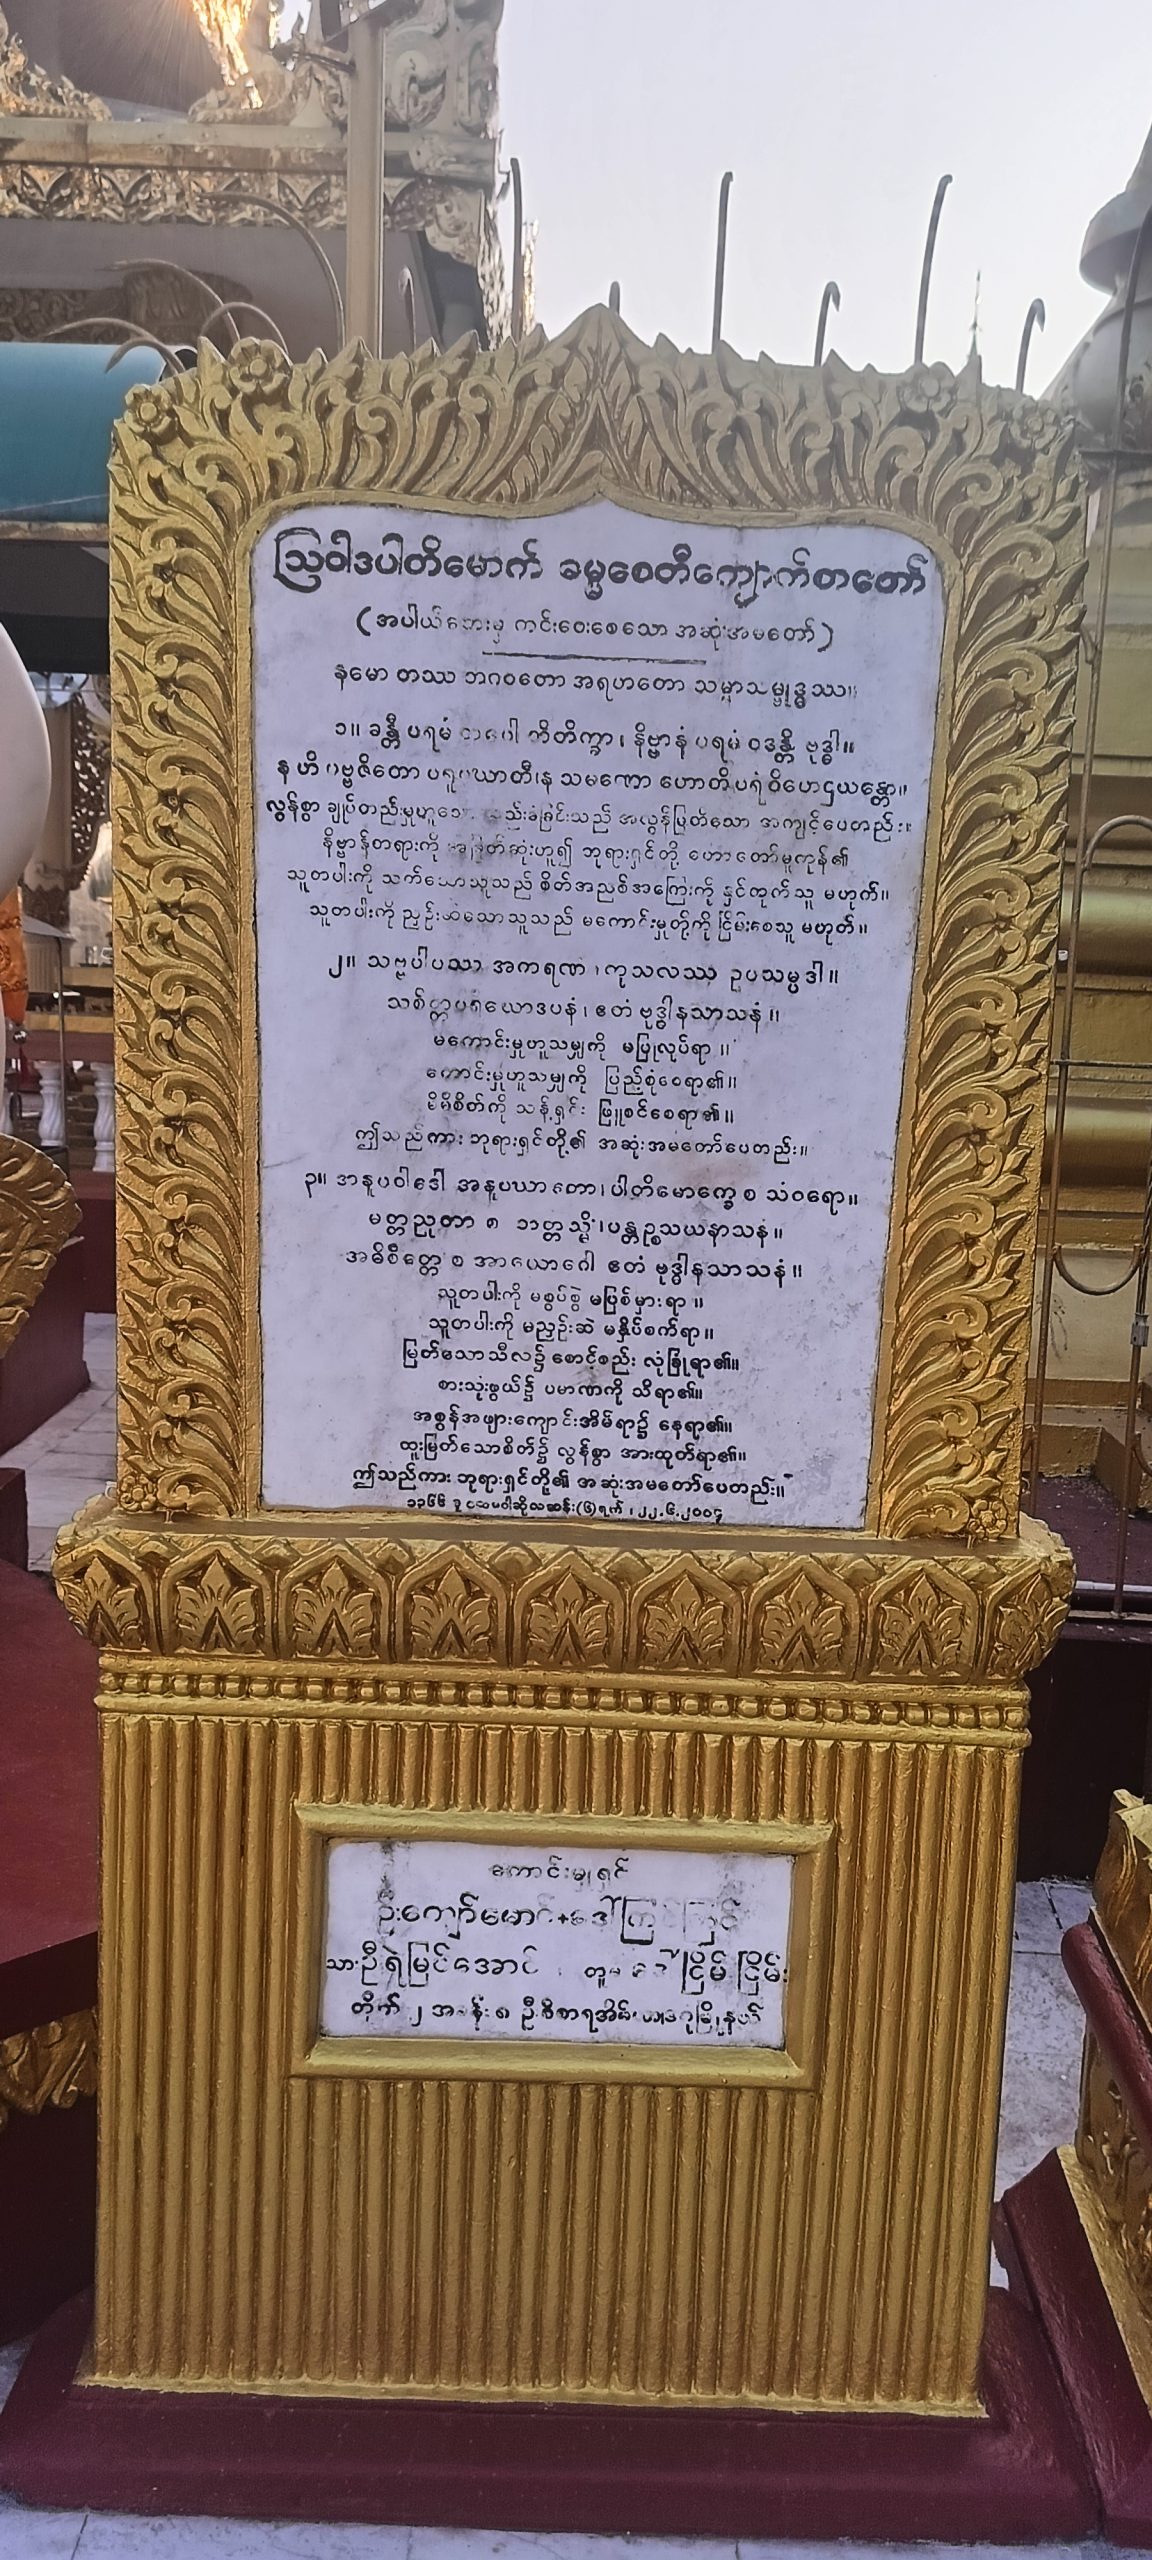 ဩဝါဒပါတိမောက် ဓမ္မစေတီကျောက်စာတော်
(အပါယ်ဘေးမှ ကင်းဝေးစေသော အဆုံးအမတော်)
နမော တဿ ဘဂဝတော အရဟတော သမ္မာသမ္ဗုဒ္ဓဿ။
၁။ ခန္တီ ပရမံ တပေါ တိတိက္ခာ၊ နိဗ္ဗာနံ ပရမံ ဝဒန္တိ ဗုဒ္ဓါ။
န ဟိ ပဗ္ဗဇိတော ပရူပဃာတီ၊န သမဏော ဟောတိ ပရံ ဝိဟေဌယန္တော။
လွန်စွာ ချုပ်တည်းမှုဟူသော သည်းခံခြင်းသည် အလွန်မြတ်သော အကျင့်ပေတည်း။
နိဗ္ဗာန်တရားကို အမြတ်ဆုံးဟူ၍ ဘုရားရှင်တို့ ဟောတော်မူကုန်၏
သူတပါးကို သတ်သောသူသည် စိတ်အညစ်အကြေးကို နှင်ထုတ်သူ မဟုတ်။
သူတပါးကို ညှဉ်းဆဲသောသူသည် မကောင်းမှုတို့ကို ငြိမ်းစေသူ မဟုတ်။
၂။ သဗ္ဗပါပဿ အကရဏံ ၊ကုသလဿ ဥပသမ္ပဒါ။
သစိတ္တပရိယောဒပနံ၊ ဧတံ ဗုဒ္ဓါနသာသနံ။
မကောင်းမှုဟူသမျှကို မပြုလုပ်ရာ။
ကောင်းမှုဟူသမျှကို ပြည့်စုံစေရာ၏။
မိမိစိတ်ကို သန့်ရှင်း ဖြူစင်စေရာ၏။
ဤသည်ကား ဘုရားရှင်တို့၏ အဆုံးအမတော်ပေတည်း။
၃။ အနူပဝါဒေါ အနူပဃာတော၊ ပါတိမောက္ခေ စ သံဝရော။
မတ္တညုတာ စ ဘတ္တသ္မိံ၊ ပန္တဉ္စသယနာသနံ။
အဓိစိတ္တေ စ အာယောဂေါ ဧတံ ဗုဒ္ဓါနသာသနံ။
သူတပါးကို မစွပ်စွဲ မပြစ်မှားရာ။
သူတပါးကို မညှဉ်းဆဲ မနှိပ်စက်ရာ။
မြတ်သောသီလ၌ စောင့်စည်း လုံခြုံရာ၏။
စားသုံးဖွယ်၌ ပမာဏကို သိရာ၏။
အစွန်အဖျားကျောင်းအိမ်ရာ၌ နေရာ၏။
ထူးမြတ်သောစိတ်၌ လွန်စွာ အားထုတ်ရာ၏။
ဤသည်ကား ဘုရားရှင်တို့၏ အဆုံးအမတော်ပေတည်း။
၁၃၆၆ ခု ပထမဝါဆိုလဆန်း(၆)ရက် ၊ ၂၂.၆.၂၀၀၄
ကောင်းမှုရှင်
ဦးကျော်မောင်+ဒေါ်ကြင်ကြင်
သားဦးရဲမြင့်အောင် တူမ ဒေါ်ငြိမ်းငြိမ်း
တိုက် ၂ အခန်း ၈ ဦးဝိစာရအိမ်ရာ ဒဂုံမြို့နယ်